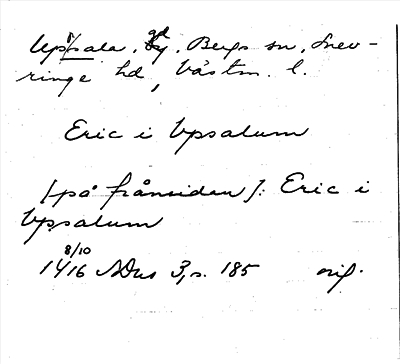 Uppsala, gd, Bergs sn, Snev-
ringe hd, Västm. l.
Eric i Vpsalum
[på frånsidan]: Eric i
Vpsalum
8/10
1416 SDns 3, s. 185 orig.